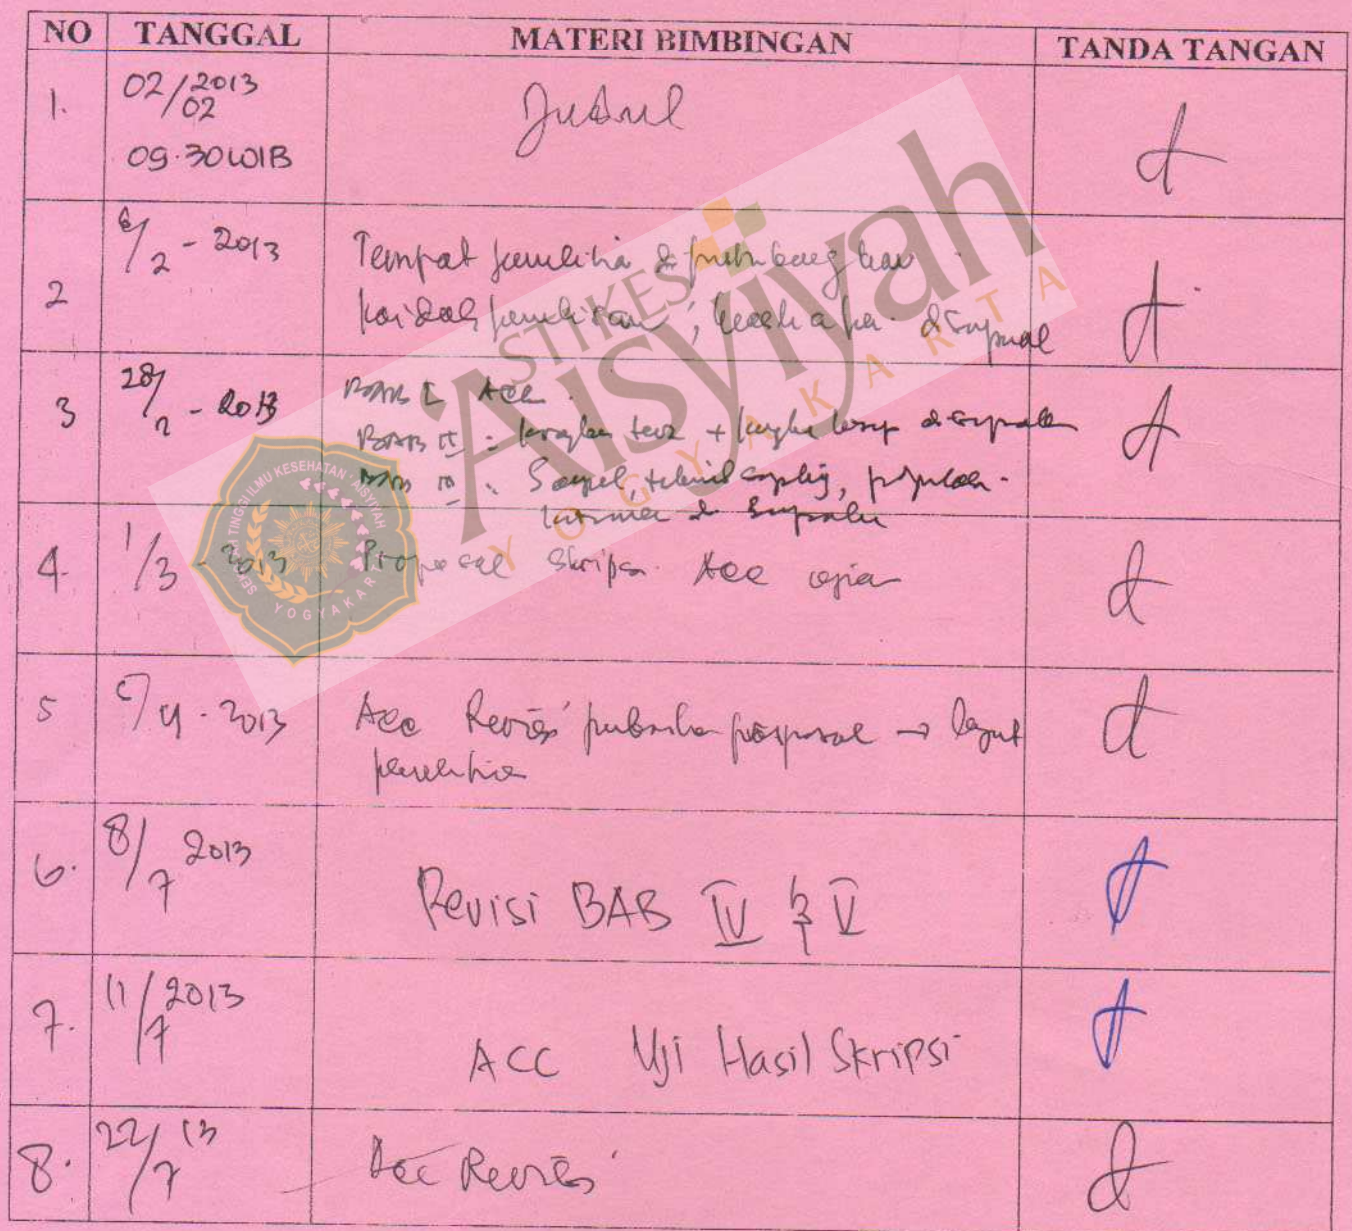 NO TANGGAL MATERI BIMBINGAN TANDA TANGAN
1. 02/02 2013 Judul
09.30 WIB
2 6/2 - 2013 Tempat penelitia & pertimbangkan
kaidah penelitian, disempurnal
3 28/2 - 2013 BAB I Acc.
BAB II : + disempurnalan
BAB III : Sampel, teknik sampling, populasi
4. 1/3 - 2013 Proposal Skripsi Acc ujian
5 5/4 - 2013 Acc Revisi proposal → lanjut
penelitia
6. 8/7 2013 Revisi BAB IV & V
7. 11/7 2013 ACC Uji Hasil Skripsi
8. 22/7 13 Acc Revisi
STIKES
'Aisyiyah
YOGYAKARTA
SEKOLAH TINGGI ILMU KESEHATAN 'AISYIYAH
YOGYAKARTA